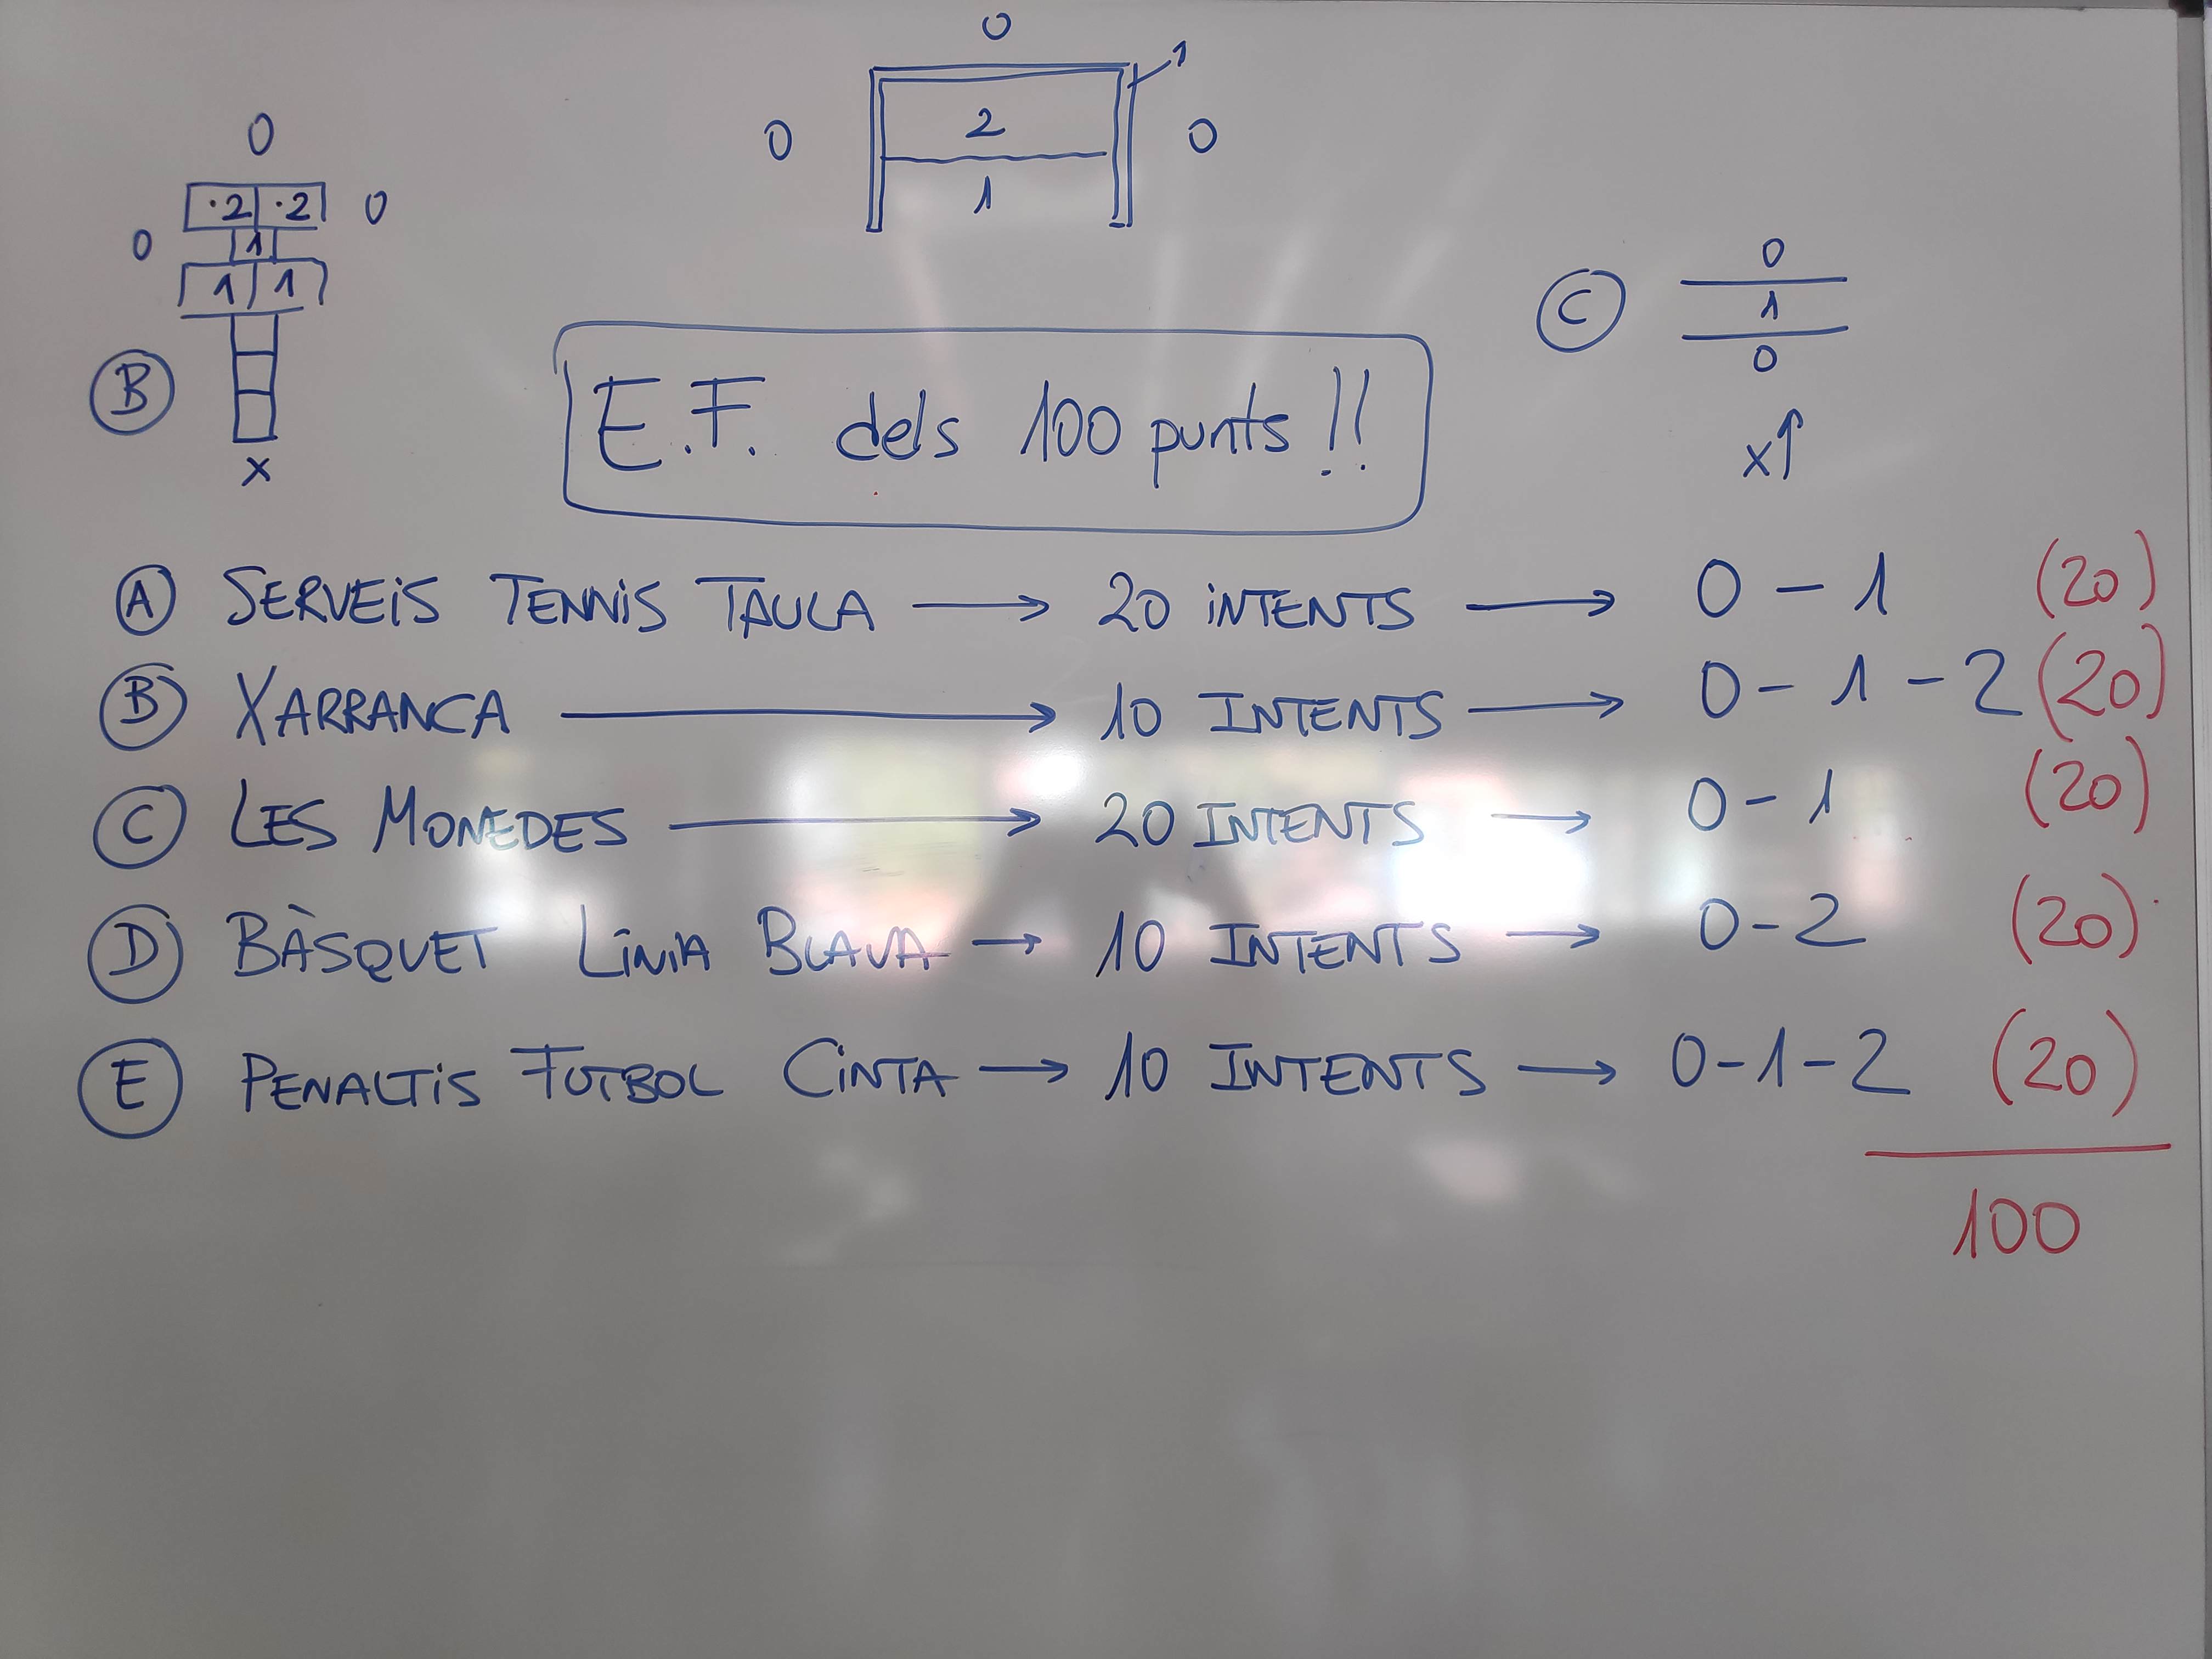 0
1
0 2 0
1
0
·2 ·2 0
0 1
1 1
B
x
C
0
1
0
x↑
E.F. dels 100 punts!!
A SERVEiS TENNiS TAULA → 20 iNTENTS → 0 - 1 (20)
B XARRANCA → 10 INTENTS → 0 - 1 - 2 (20)
C LES MONEDES → 20 INTENTS → 0 - 1 (20)
D BÀSQUET LíNiA BLAVA → 10 INTENTS → 0 - 2 (20)
E PENALTiS FUTBOL CiNTA → 10 INTENTS → 0 - 1 - 2 (20)
100